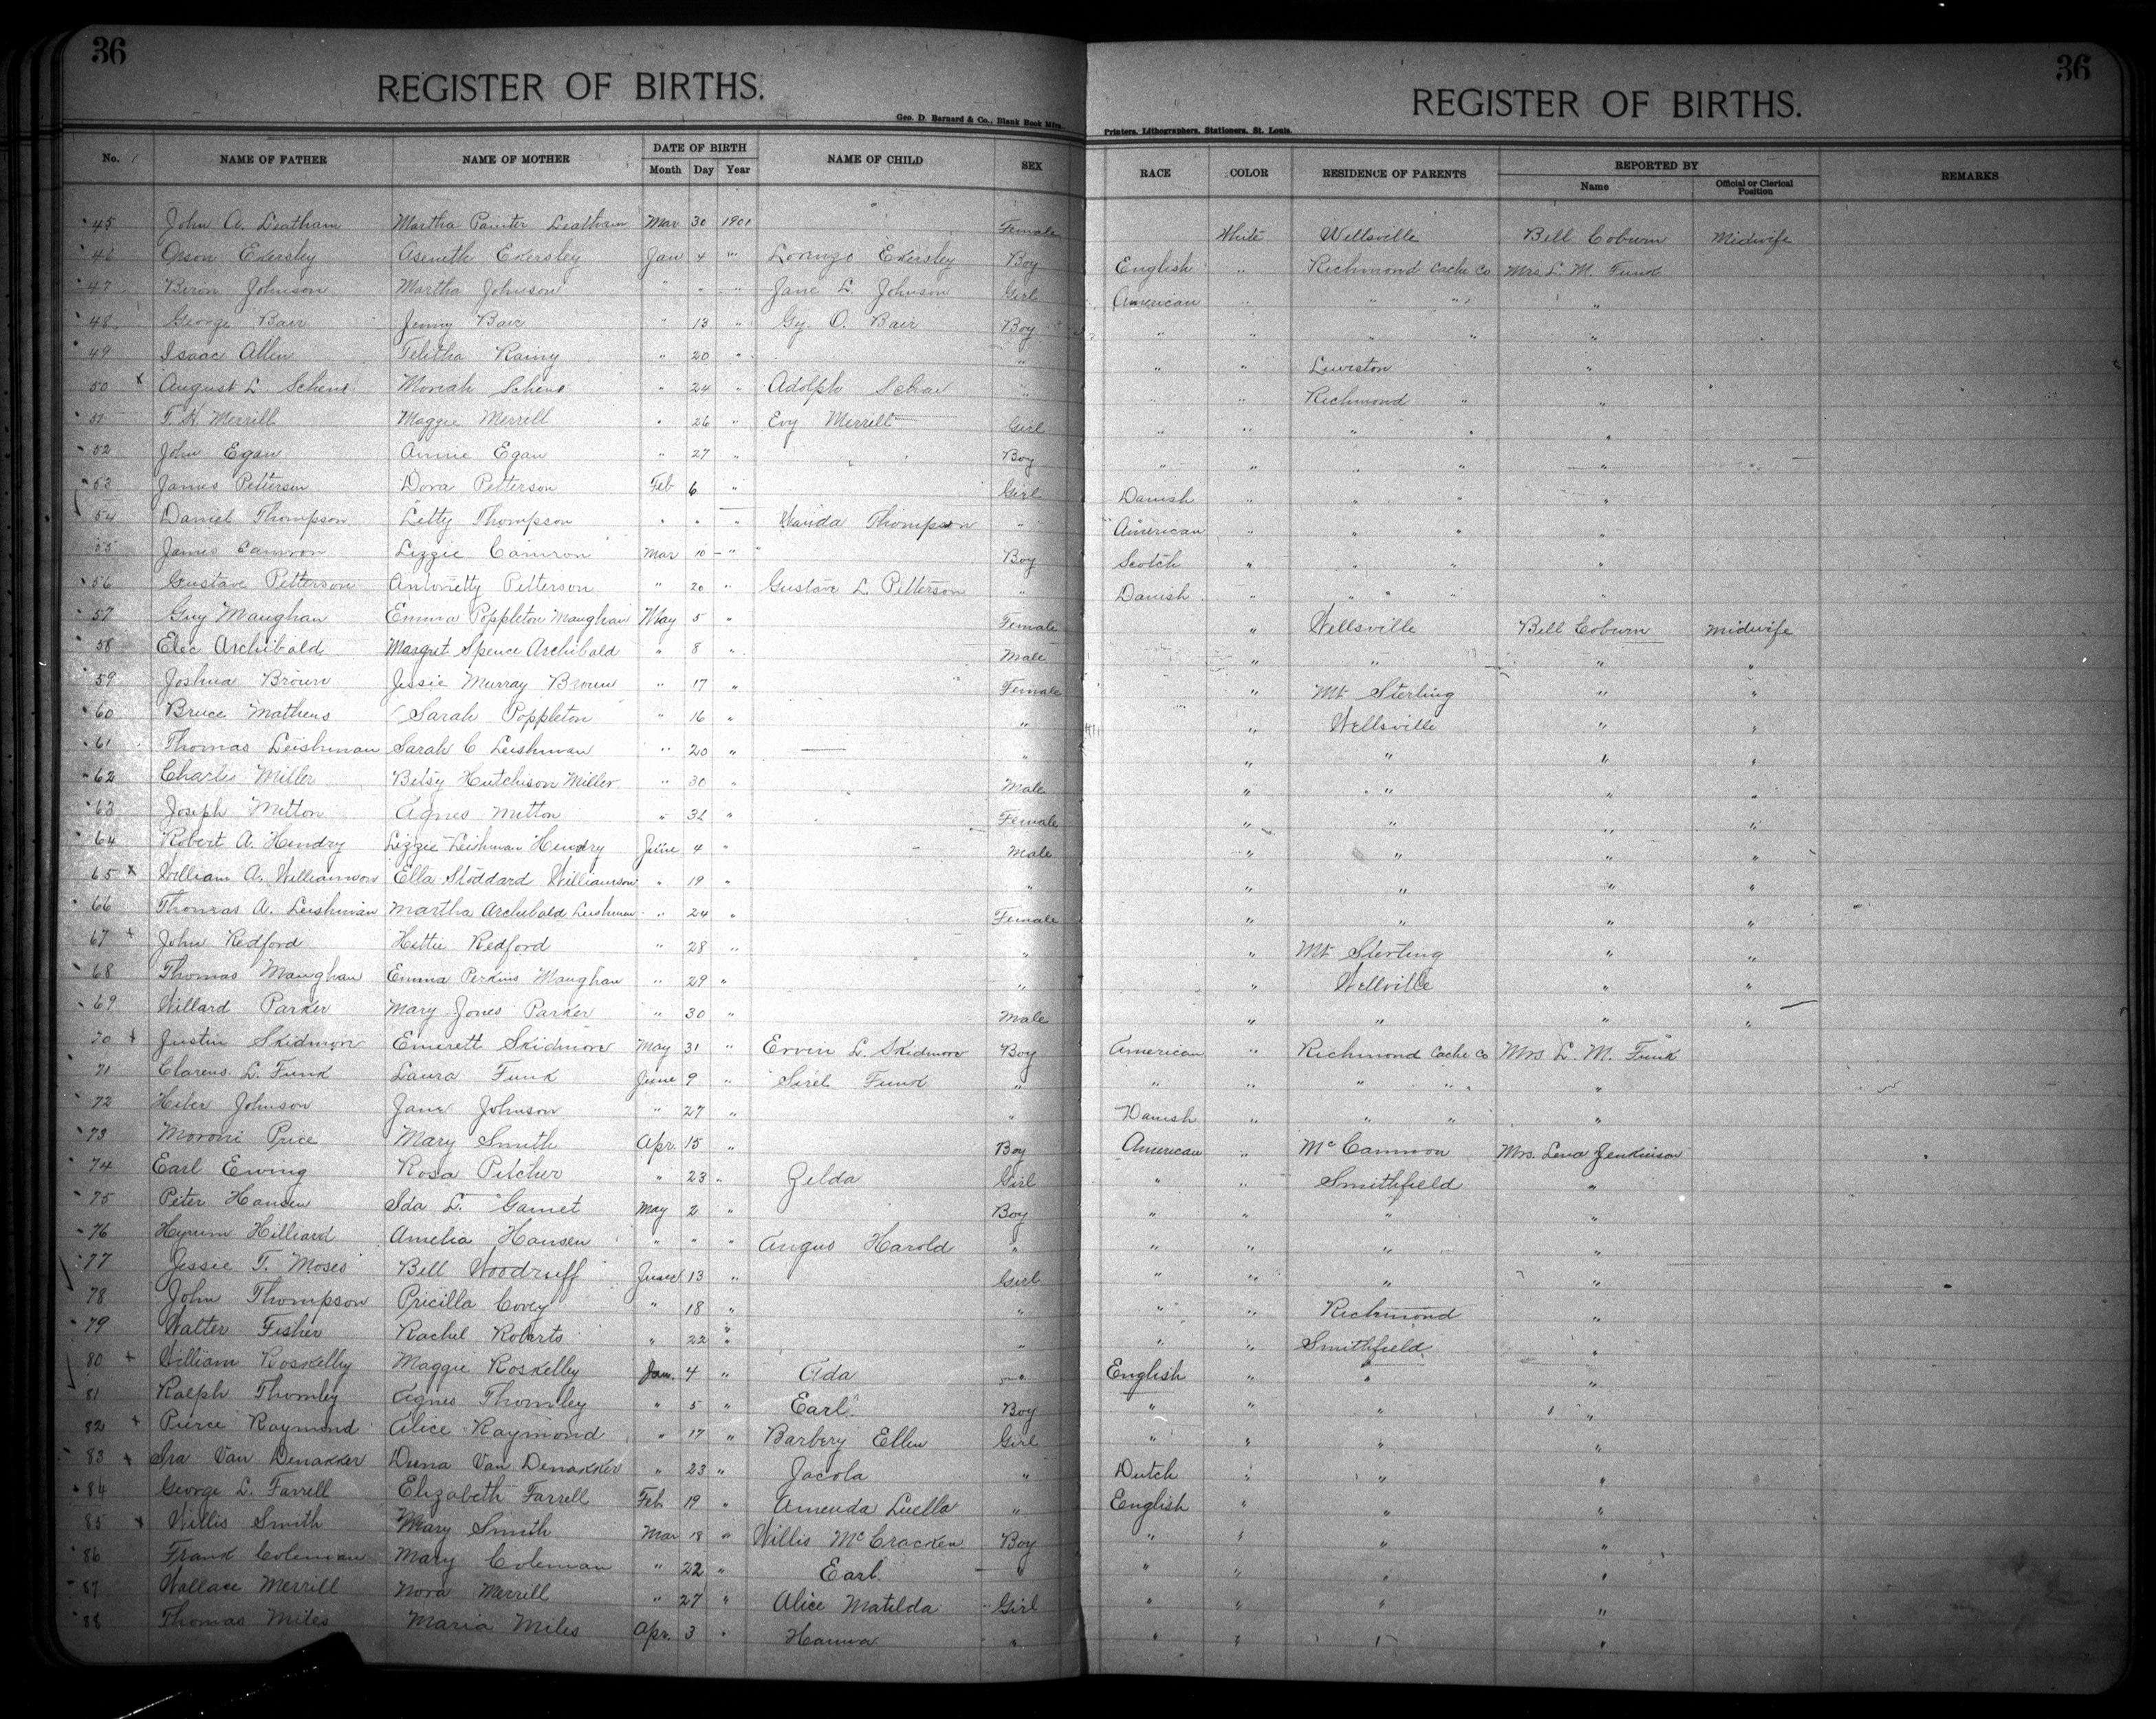 36
36
REGISTER OF BIRTHS.
REGISTER OF BIRTHS.
Geo. D. Barnard & Co., Blank Book Mfrs.
Printers, Lithographers, Stationers, St. Louis.
No. NAME OF FATHER NAME OF MOTHER DATE OF BIRTH Month Day Year NAME OF CHILD SEX RACE COLOR RESIDENCE OF PARENTS REPORTED BY Name Official or Clerical Position REMARKS
45 John A. Leatham Martha Painter Leatham Mar 30 1901 Female White Wellsville Bell Coburn Midwife
46 Orson Ekersley Aseneth Ekersley Jan 4 " Lorenzo Ekersley Boy English " Richmond Cache Co Mrs L. M. Funk
47 Biron Johnson Martha Johnson " " " Jane L. Johnson Girl American " " " "
48 George Bair Jenny Bair " 13 " Gy. O. Bair Boy " " " " "
49 Isaac Allen Telitha Rainy " 20 " " " " Lewiston "
50 x August L. Schene Moriah Schene " 24 " Adolph " " " Richmond " "
51 T. H. Merrill Maggie Merrill " 26 " Evy Merrill Girl " " " " "
52 John Egan Annie Egan " 27 " Boy " " " " "
53 James Petterson Dora Petterson Feb 6 " Girl Danish " " " "
54 Daniel Thompson Letty Thompson " " " Wanda Thompson " American " " " "
55 James Camron Lizzie Camron Mar 10 " Boy Scotch " " " "
56 Gustave Petterson Antonetty Petterson " 20 " Gustave L. Petterson " Danish " " " "
57 Guy Maughan Emma Poppleton Maughan May 5 " Female " Wellsville Bell Coburn Midwife
58 Elec Archibald Margret Spence Archibald " 8 " Male " " " "
59 Joshua Brown Jessie Murray Brown " 17 " Female " Mt Sterling " "
60 Bruce Mathews Sarah Poppleton " 16 " " " Wellsville " "
61 Thomas Leishman Sarah C Leishman " 20 " " " " " "
62 Charles Miller Betsy Hutchison Miller " 30 " Male " " " "
63 Joseph Mitton Agnes Mitton " 31 " Female " " " "
64 Robert A. Hendry Lizzie Leishman Hendry June 4 " Male " " " "
65 x William A. Williamson Ella Stoddard Williamson " 19 " " " " " "
66 Thomas A. Leishman Martha Archibald Leishman " 24 " Female " " " "
67 + John Redford Hettie Redford " 28 " " " Mt Sterling " "
68 Thomas Maughan Emma Perkins Maughan " 29 " " " Wellville " "
69 Willard Parker Mary Jones Parker " 30 " Male " " " "
70 + Justin Skidmore Emerett Skidmore May 31 " Ervin L. Skidmore Boy American " Richmond Cache Co Mrs L. M. Funk
71 Clarens. L. Funk Laura Funk June 9 " Sirel Funk " " " " " "
72 Heber Johnson Jane Johnson " 27 " " Danish " " " "
73 Moroni Price Mary Smith Apr. 15 " Boy American " McCammon Mrs. Lena Jenkinson
74 Earl Ewing Rosa Pitcher " 23 " Zelda Girl " " Smithfield "
75 Peter Hansen Ida L. Garnet May 2 " Boy " " " "
76 Hyrum Hilliard Amelia Hansen " " " Angus Harold " " " " "
77 Jessie T. Moses Bell Woodruff June 13 " Girl " " " "
78 John Thompson Pricilla Covey " 18 " " " " Richmond "
79 Walter Fisher Rachel Roberts " 22 " " " " Smithfield "
80 + William Roskelley Maggie Roskelley Jan. 4 " Ada " English " " "
81 Ralph Thornley Agnes Thornley " 5 " Earl. Boy " " " "
82 + Pierce Raymond Alice Raymond " 17 " Barbery Ellen Girl " " " "
83 + Ira Van Denakker Diena Van Denakker " 23 " Jacola " Dutch " " "
84 George L. Farrell Elizabeth Farrell Feb 19 " Amenda Luella " English " " "
85 + Willis Smith Mary Smith Mar 18 " Willis McCracken Boy " " " "
86 Frank Coleman Mary Coleman " 22 " Earl. " " " " "
87 Wallace Merrill Nora Merrill " 27 " Alice Matilda Girl " " " "
88 Thomas Miles Maria Miles Apr. 3 " Hanna " " " " "